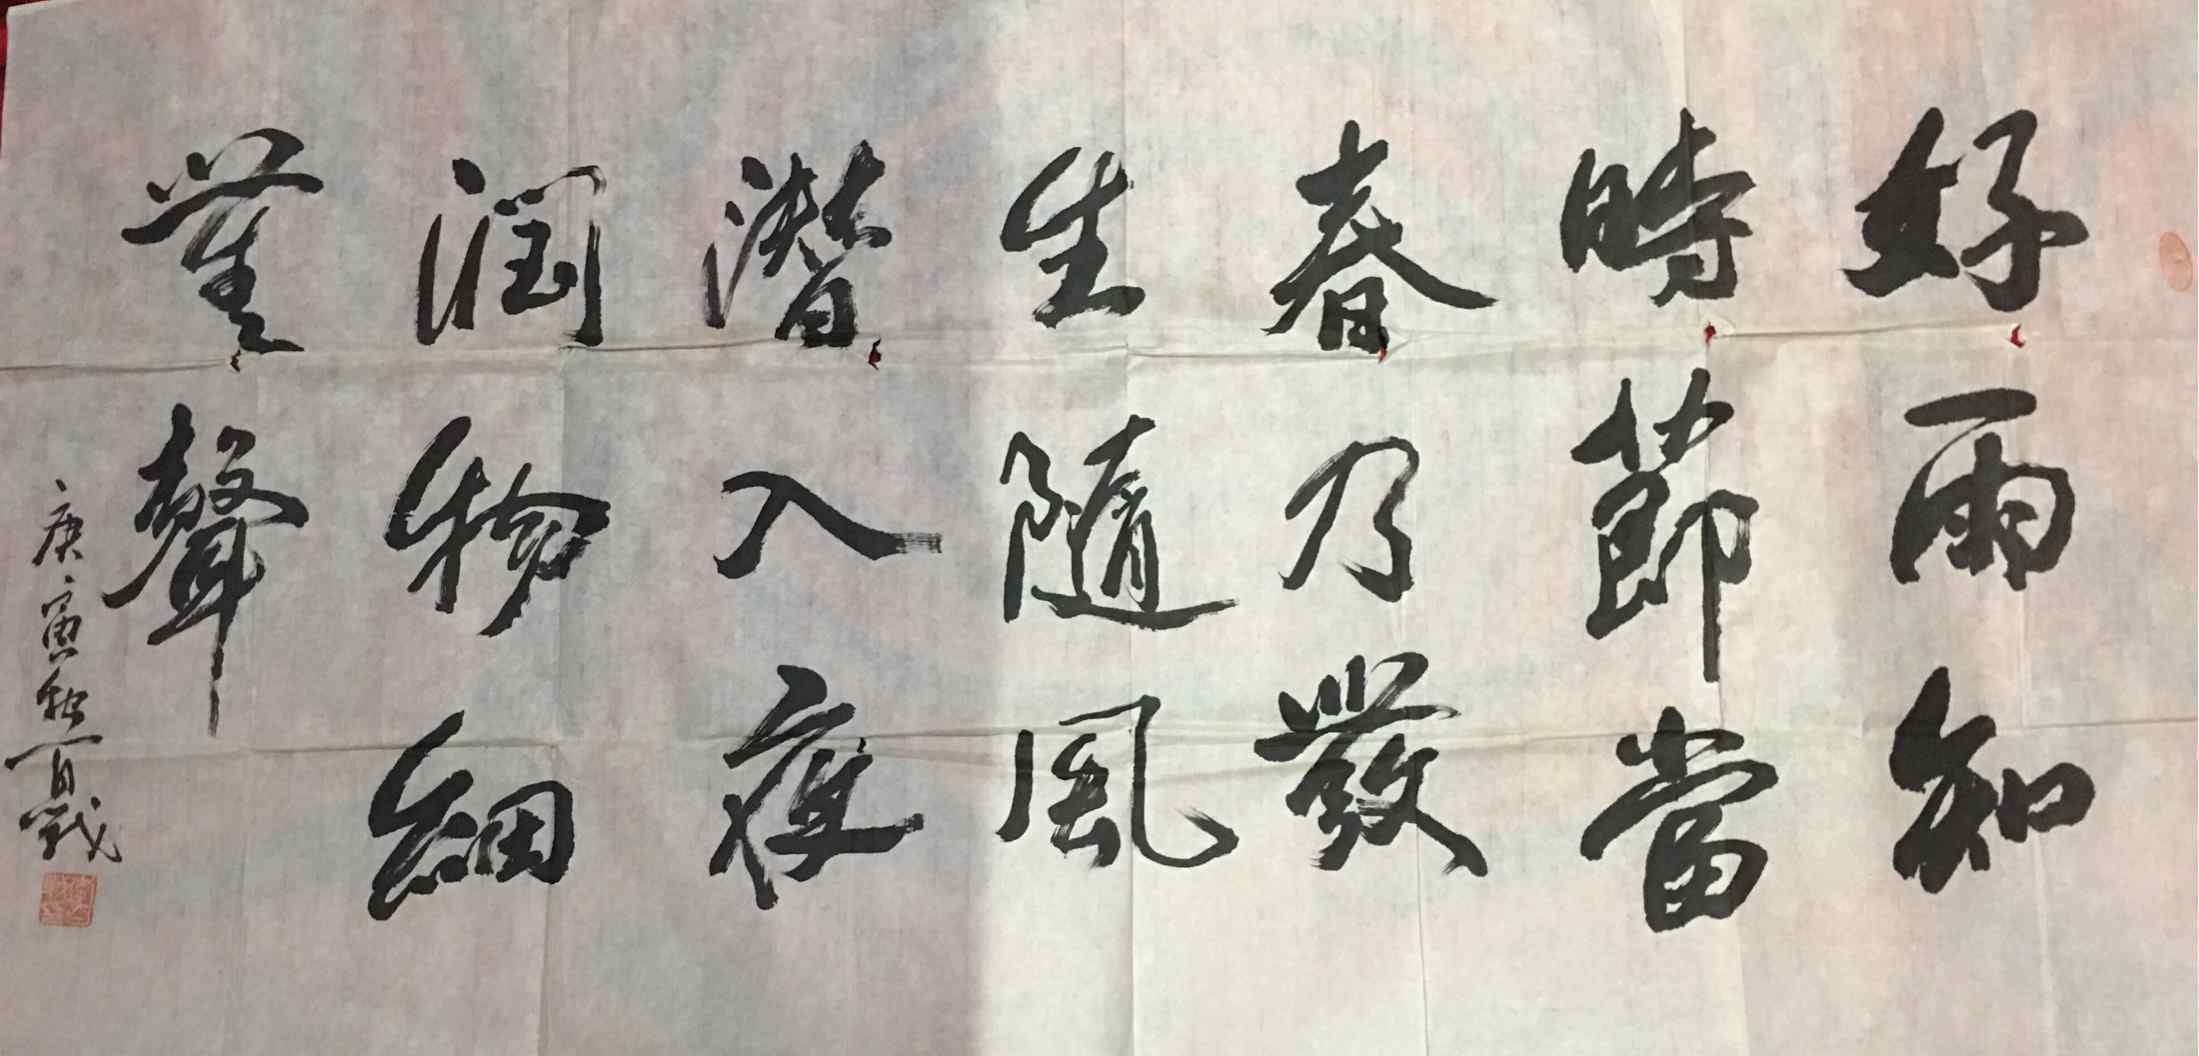 好雨知
時節當
春乃發
生隨風
潛入夜
潤物細
無聲
庚寅秋百戰